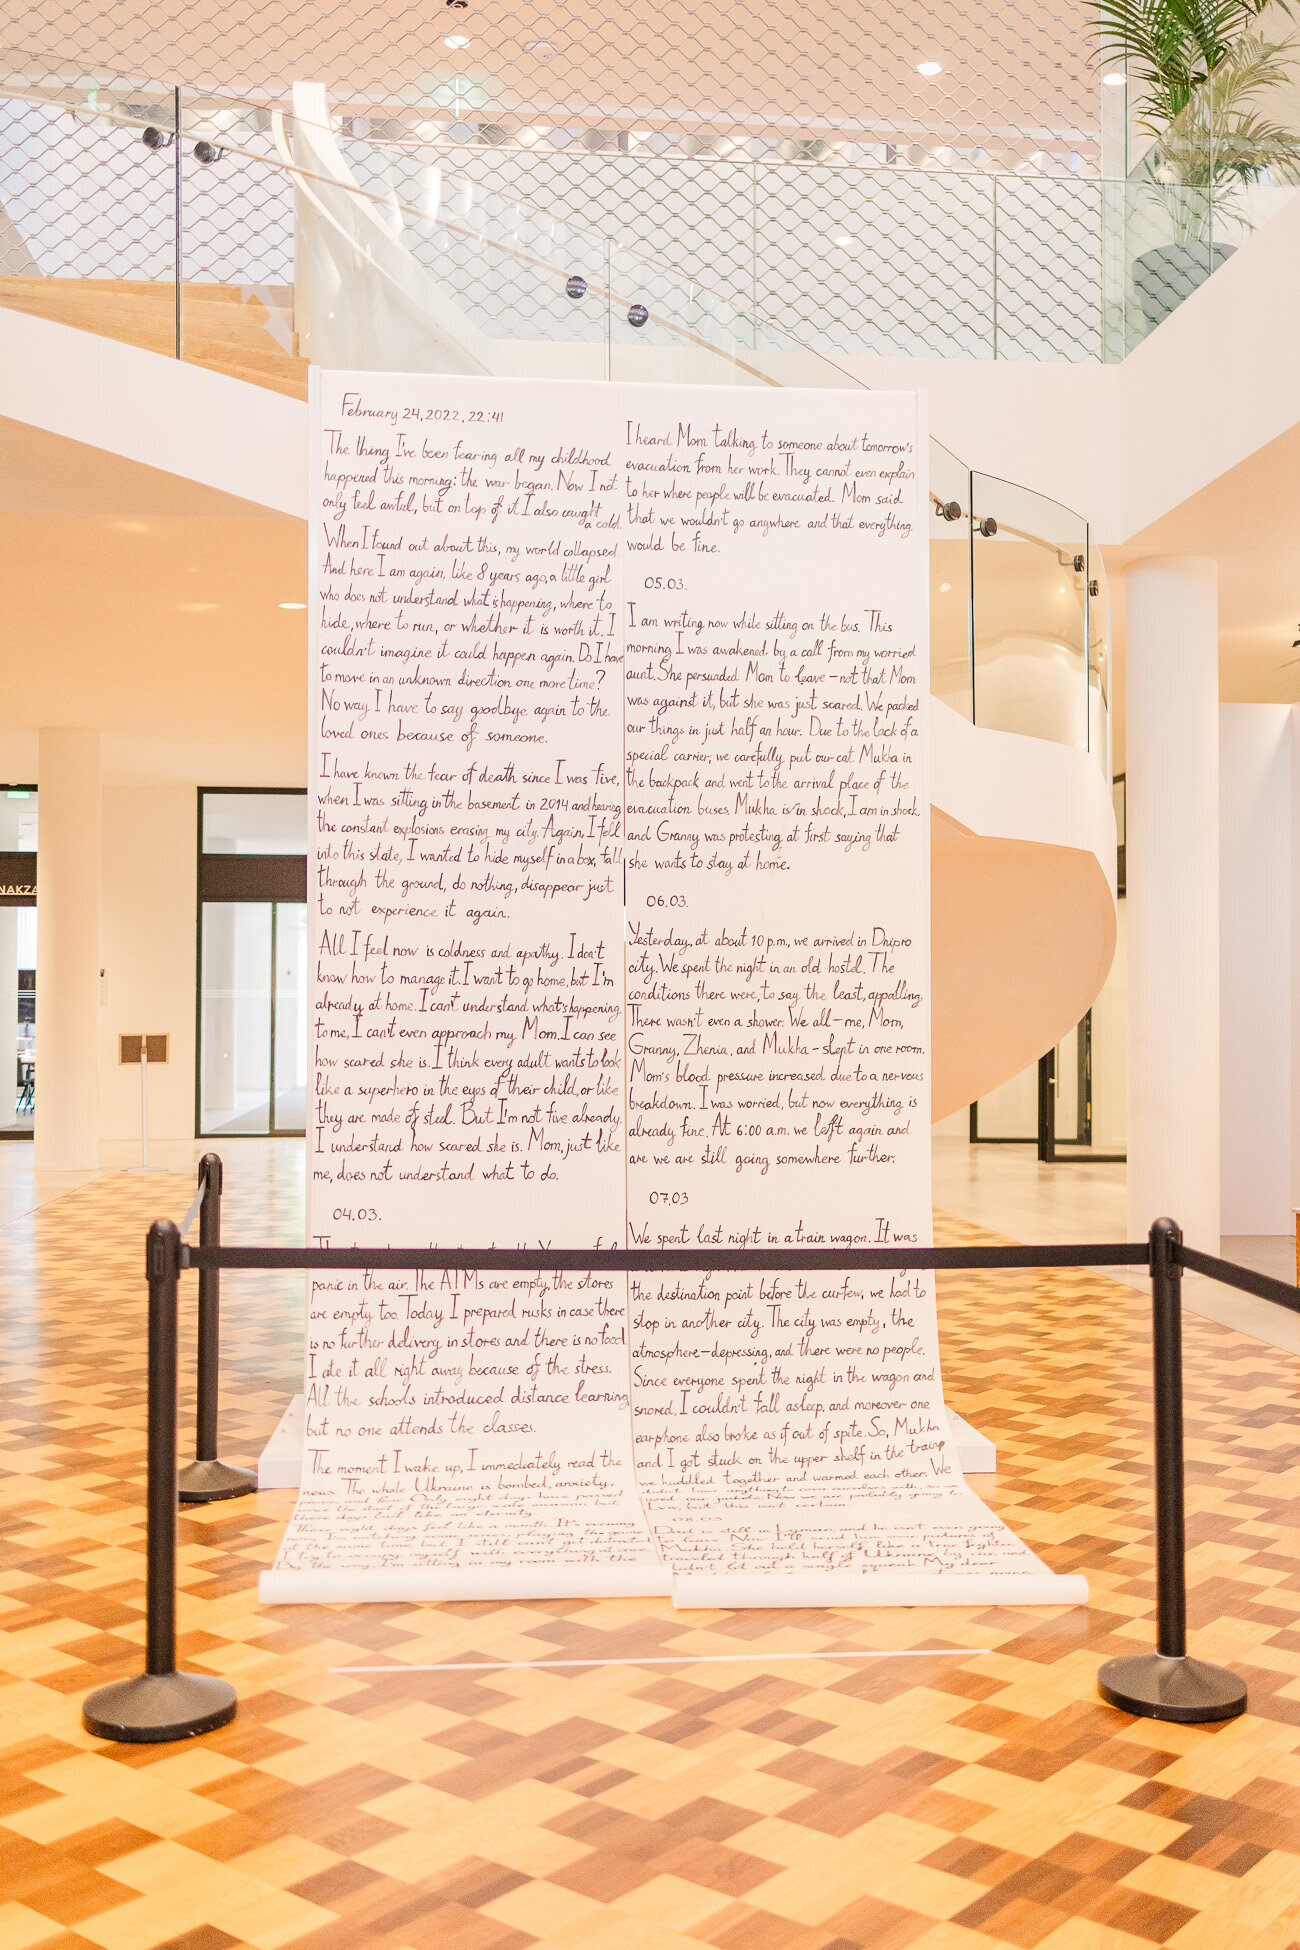 February 24, 2022, 22:41
The thing I've been fearing all my childhood
happened this morning: the war began. Now I not
only feel awful, but on top of it I also caught
a cold.
When I found out about this, my world collapsed.
And here I am again, like 8 years ago, a little girl
who does not understand what is happening, where to
hide, where to run, or whether it is worth it. I
couldn't imagine it could happen again. Do I have
to move in an unknown direction one more time?
No way I have to say goodbye again to the
loved ones because of someone.
I have known the fear of death since I was five,
when I was sitting in the basement in 2014 and hearing
the constant explosions erasing my city. Again, I fell
into this state, I wanted to hide myself in a box, fall
through the ground, do nothing, disappear just
to not experience it again.
All I feel now is coldness and apathy. I don't
know how to manage it. I want to go home, but I'm
already at home. I can't understand what's happening
to me, I can't even approach my Mom. I can see
how scared she is. I think every adult wants to look
like a superhero in the eyes of their child, or like
they are made of steel. But I'm not five already.
I understand how scared she is. Mom, just like
me, does not understand what to do.
04.03.
panic in the air. The ATMs are empty, the stores
are empty too. Today I prepared rusks in case there
is no further delivery in stores and there is no food
I ate it all right away because of the stress.
All the schools introduced distance learning
but no one attends the classes.
The moment I wake up, I immediately read the
news. The whole Ukraine is bombed, anxiety,
panic, and fear. Only eight days have passed
since the start of the large-scale invasion, but
these days last like an eternity.
These eight days feel like a month. It's evening
at the same time, but I still can't get distracted
I try to occupy myself with everything at once
By the way, sitting in my room with the
I heard Mom talking to someone about tomorrow's
evacuation from her work. They cannot even explain
to her where people will be evacuated. Mom said
that we wouldn't go anywhere and that everything
would be fine.
05.03.
I am writing now while sitting on the bus. This
morning I was awakened by a call from my worried
aunt. She persuaded Mom to leave – not that Mom
was against it, but she was just scared. We packed
our things in just half an hour. Due to the lack of a
special carrier, we carefully put our cat Mukha in
the backpack and went to the arrival place of the
evacuation buses. Mukha is in shock, I am in shock,
and Granny was protesting at first saying that
she wants to stay at home.
06.03.
Yesterday, at about 10 p.m., we arrived in Dnipro
city. We spent the night in an old hostel. The
conditions there were, to say the least, appalling.
There wasn't even a shower. We all – me, Mom,
Granny, Zhenia, and Mukha – slept in one room.
Mom's blood pressure increased due to a nervous
breakdown. I was worried, but now everything is
already fine. At 6:00 a.m. we left again and
are we are still going somewhere further.
07.03
We spent last night in a train wagon. It was
the destination point before the curfew, we had to
stop in another city. The city was empty, the
atmosphere – depressing, and there were no people.
Since everyone spent the night in the wagon and
snored, I couldn't fall asleep, and moreover one
earphone also broke as if out of spite. So, Mukha
and I got stuck on the upper shelf in the train,
we huddled together and warmed each other. We
didn't have anything to cover ourselves with, so we
used our jackets. Now we are probably going to
Lviv, but this isn't certain.
08.03
Dad is still in Lyman and he isn't even going
to leave. Now I'll send him our pictures of
Mukha. She held herself like a true fighter
traveled through half of Ukraine by car, and
didn't let out a single squeak. My dear
NAKZA